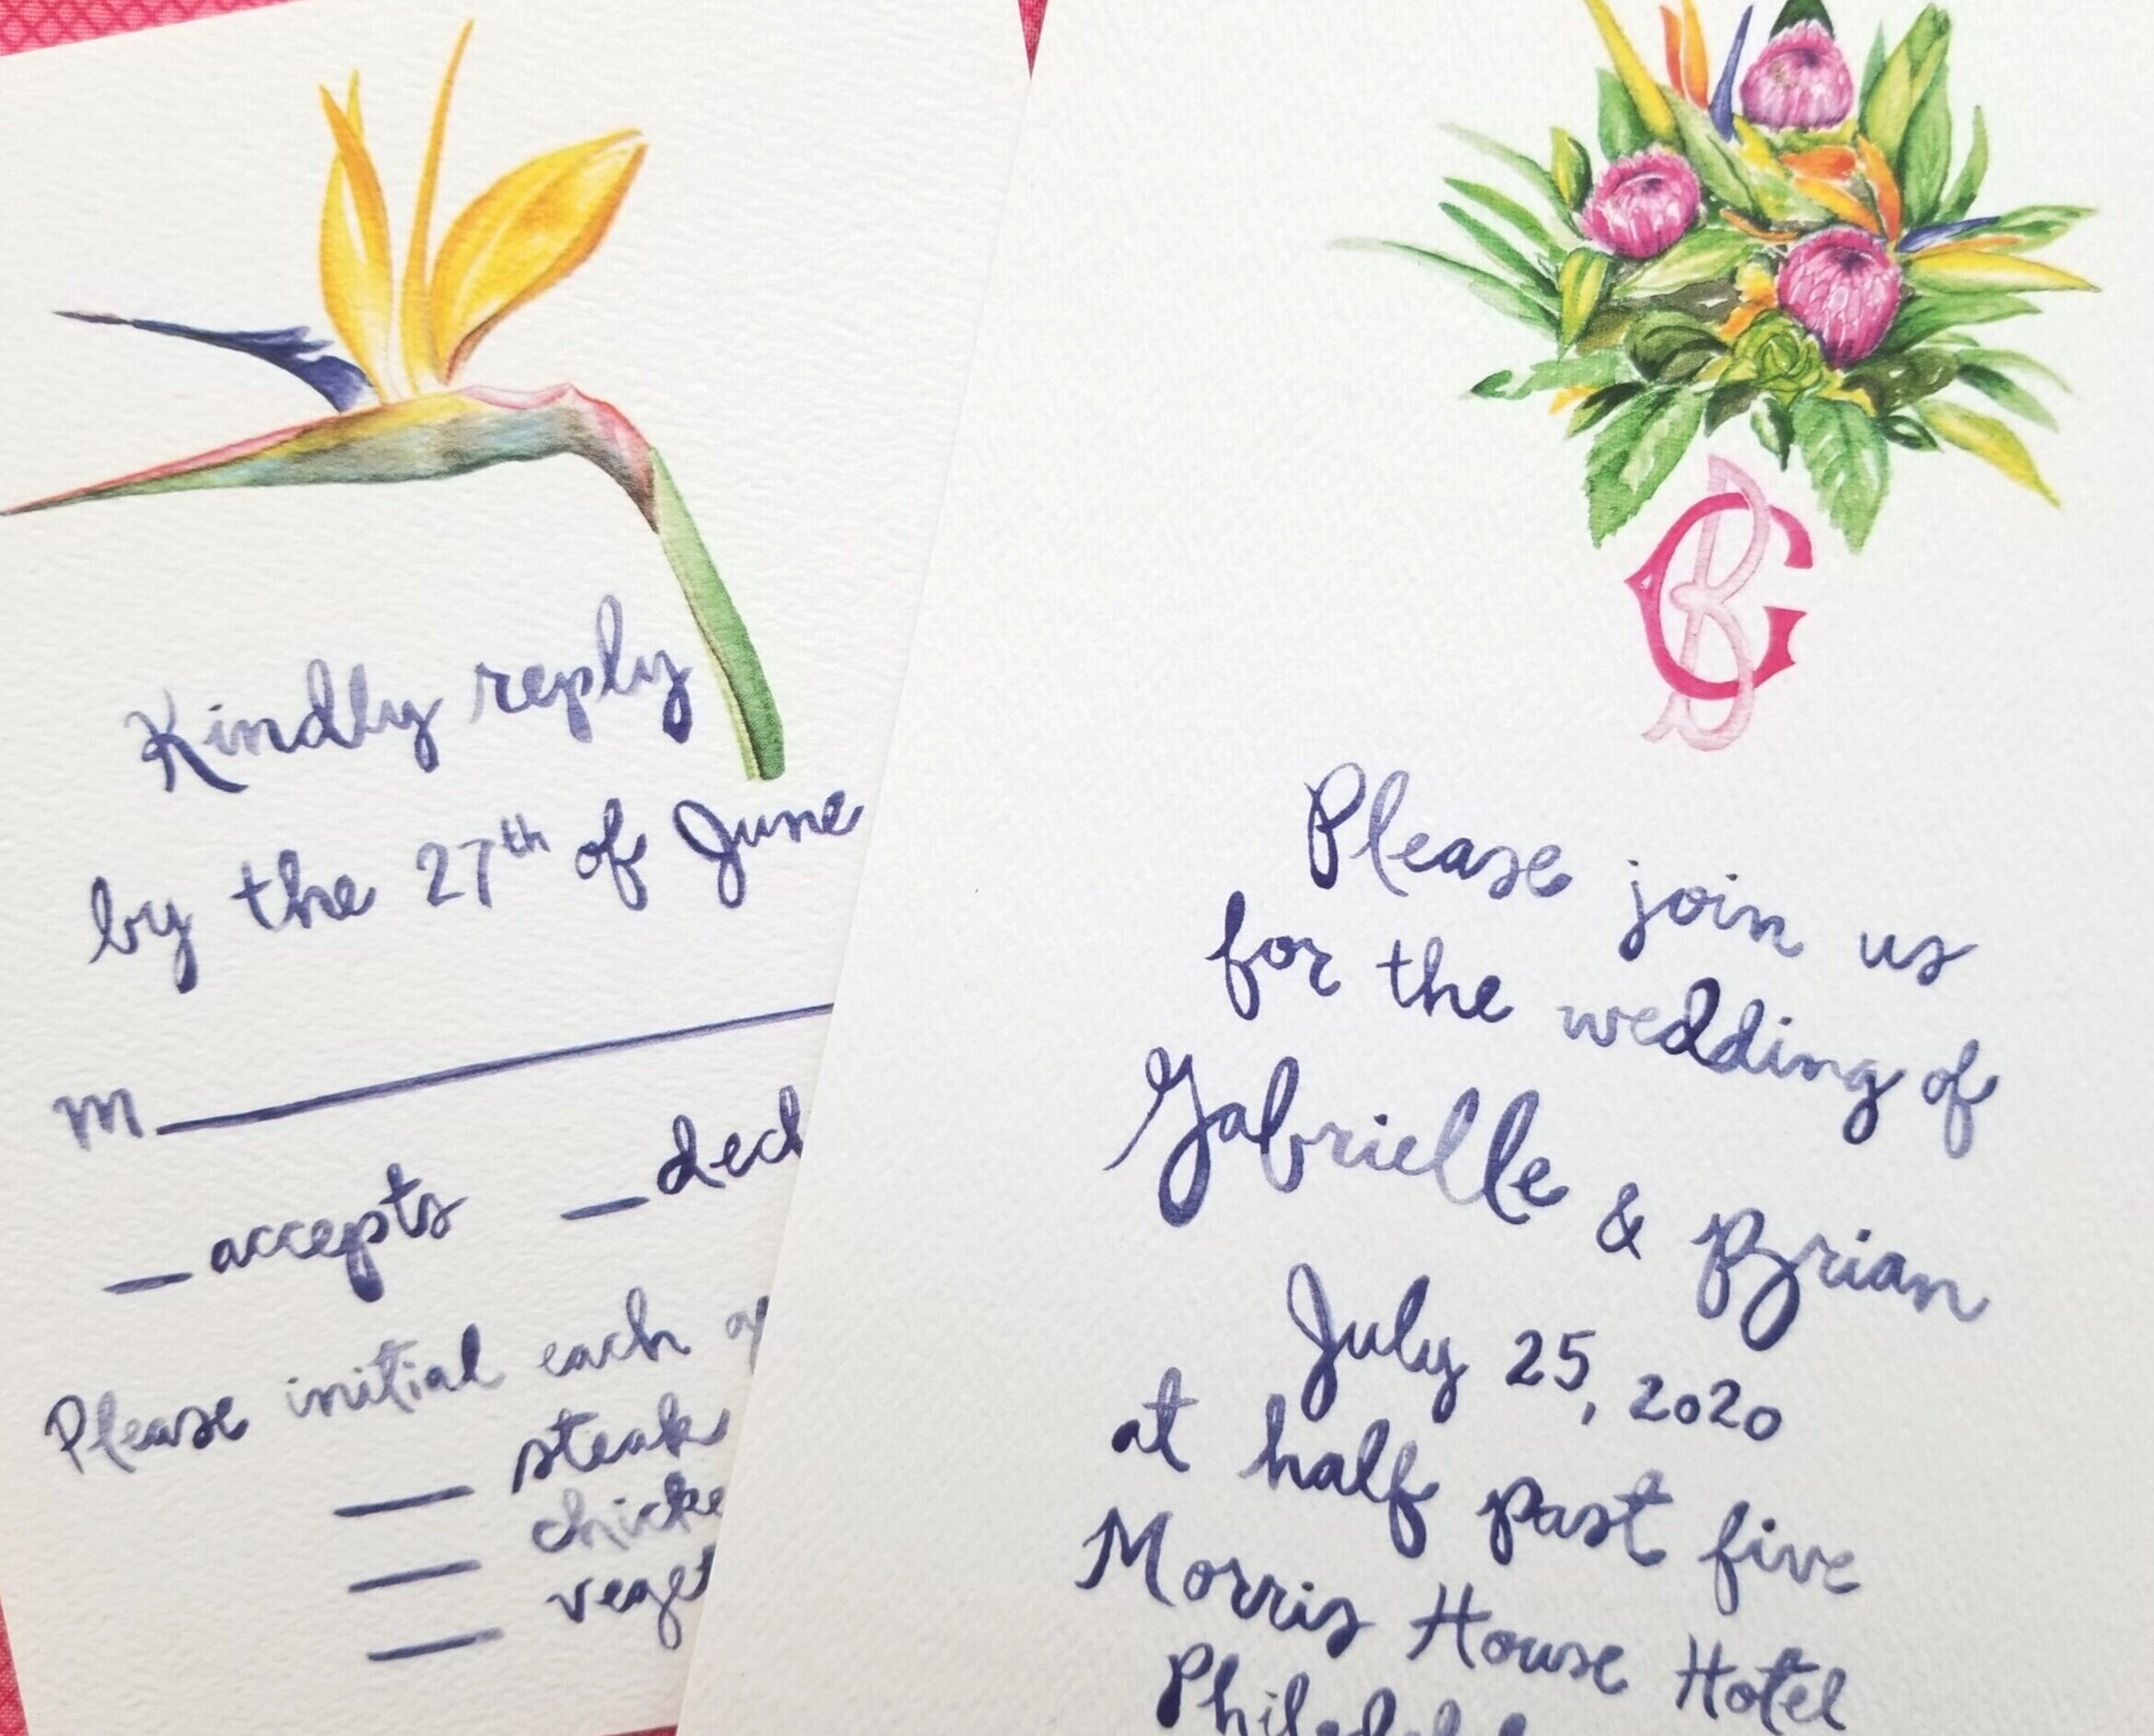 Kindly reply
by the 27th of June
M
accepts
Please initial each
steak
GB
Please join us
for the wedding of
Gabrielle & Brian
July 25, 2020
at half past five
Morris House Hotel